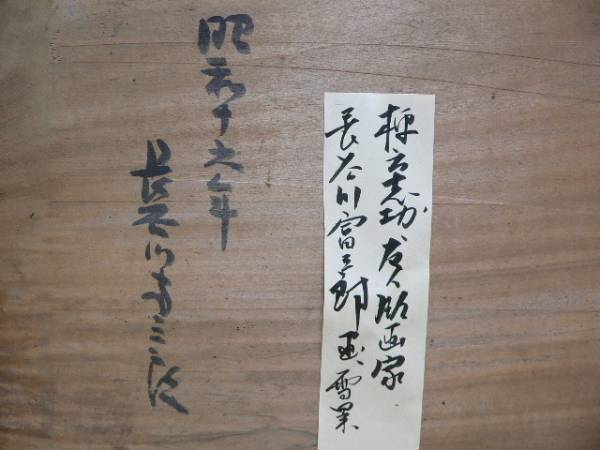 棟方志功友人版画家
長谷川富三郎画雪景
昭和十六年
長谷川富三郎